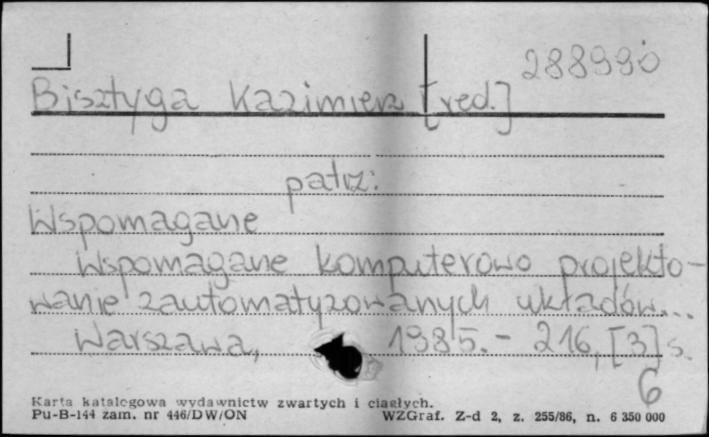 288990
Bisztyga Kazimierz [red.]
patrz:
Wspomagane
Wspomagane komputerowo projekto-
wanie zautomatyzowanych układów...
Warszawa, 1985. - 216, [3] s.
6
Karta katalogowa wydawnictw zwartych i ciągłych.
Pu-B-144 zam. nr 446/DW/ON WZGraf. Z-d 2, z. 255/86, n. 6 350 000